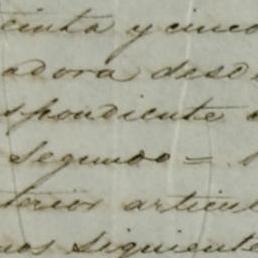 cinta y cinco
adora desc
spondiente
Segundo =
terios articul
nos siguiente